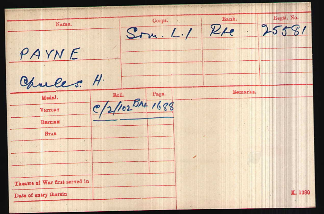 Name. Corps. Rank. Regtl. No.
PAYNE Som. L.I Pte. 25581
Charles. H.
Medal. Roll. Page. Remarks.
Victory C/2/102 B14 1688
British
Star
Theatre of War first served in
Date of entry therein
K. 1380